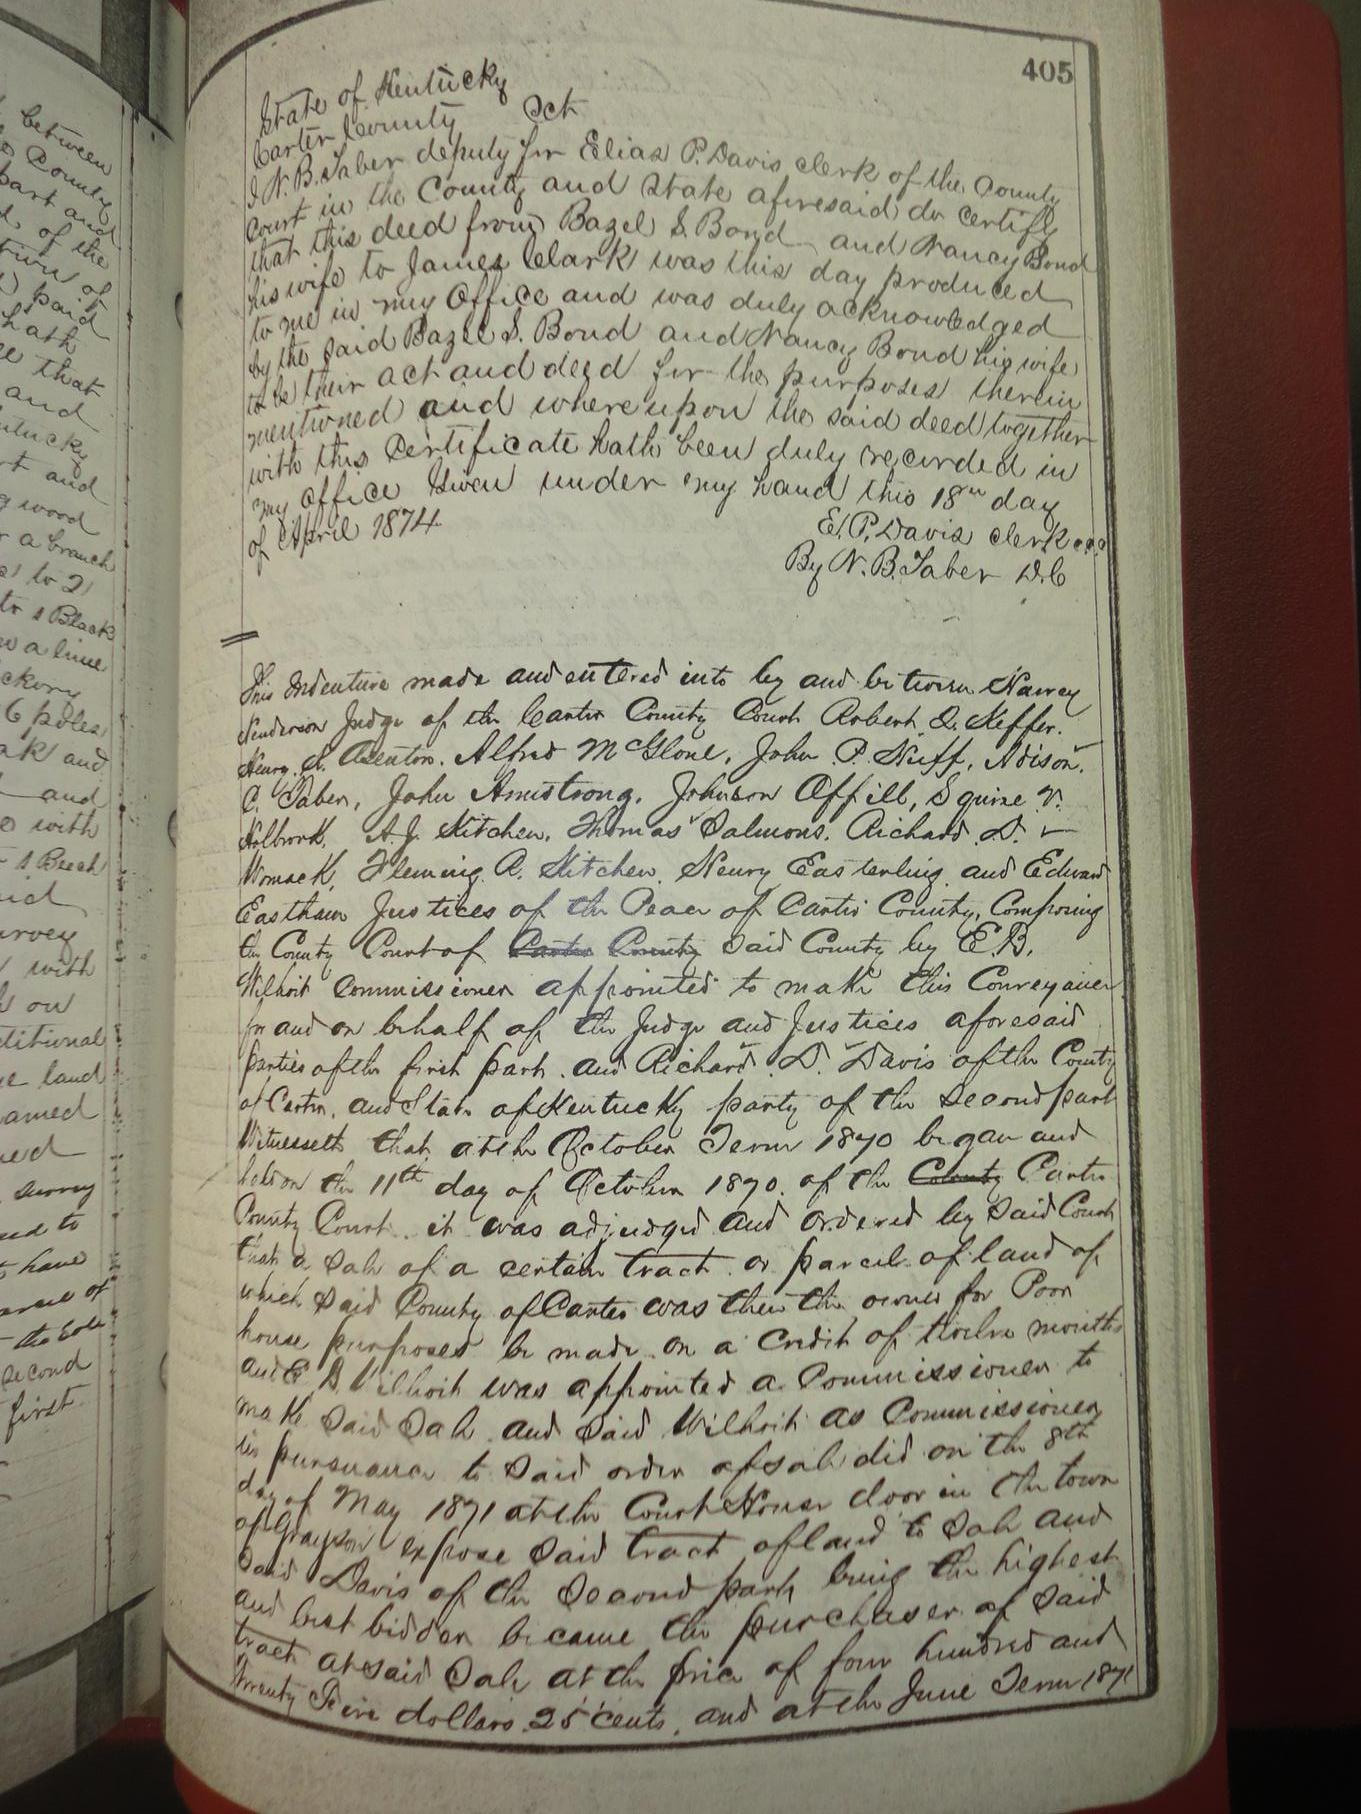 405
State of Kentucky
Carter County Sct
I N. B. Taber deputy for Elias P. Davis clerk of the County
Court in the County and State aforesaid do certify
that this deed from Bazel S. Bond and Nancy Bond
his wife to James Clark was this day produced
to me in my Office and was duly acknowledged
by the said Bazel S. Bond and Nancy Bond his wife
to be their act and deed for the purposes therein
mentioned and whereupon the said deed together
with this Certificate hath been duly recorded in
my office Given under my hand this 18th day
of April 1874
E. P. Davis clerk
By N. B. Taber D.C
This Indenture made and entered into by and between Harvey
Henderson Judge of the Carter County Court Robert Q. Keffer.
Henry A. Alfred McGlone, John P. Huff, Adison
C. Taber, John Armstrong, Johnson Offill, Squire V.
Holbrook, A. J. Kitchen, Thomas Salmons, Richard D.
Womack, Fleming R. Kitchen, Henry Easterling and Edward
Eastham Justices of the Peace of Carter County, Composing
the County Court of Carter County said County by E. B.
Wilhoit Commissioner appointed to make this Conveyance
for and on behalf of the Judge and Justices aforesaid
parties of the first part and Richard D. Davis of the County
of Carter, and State of Kentucky party of the second part
Witnesseth that at the October Term 1870 began and
held on the 11th day of October 1870 of the County Carter
County Court it was adjudged and ordered by said Court
that a sale of a certain tract or parcel of land of
which said County of Carter was then the owner for Poor
house purposes be made on a Credit of twelve months
and E B Wilhoit was appointed a Commissioner to
make said sale and said Wilhoit as Commissioner
in pursuance to said order of sale did on the 8th
day of May 1871 at the Court House door in the town
of Grayson expose said tract of land to sale and
said Davis of the second part being the highest
and best bidder became the purchaser of said
tract at said sale at the price of four hundred and
twenty Five dollars 25 cents, and at the June Term 1871
between
County
part and
of the
paid
hath
that
and
Kentucky
and
wood
a branch
to 21
to 1 Black
a line
hickory
6 poles
and
and
with
1 Beech
survey
with
on
land
named
survey
to
have
the
second
first